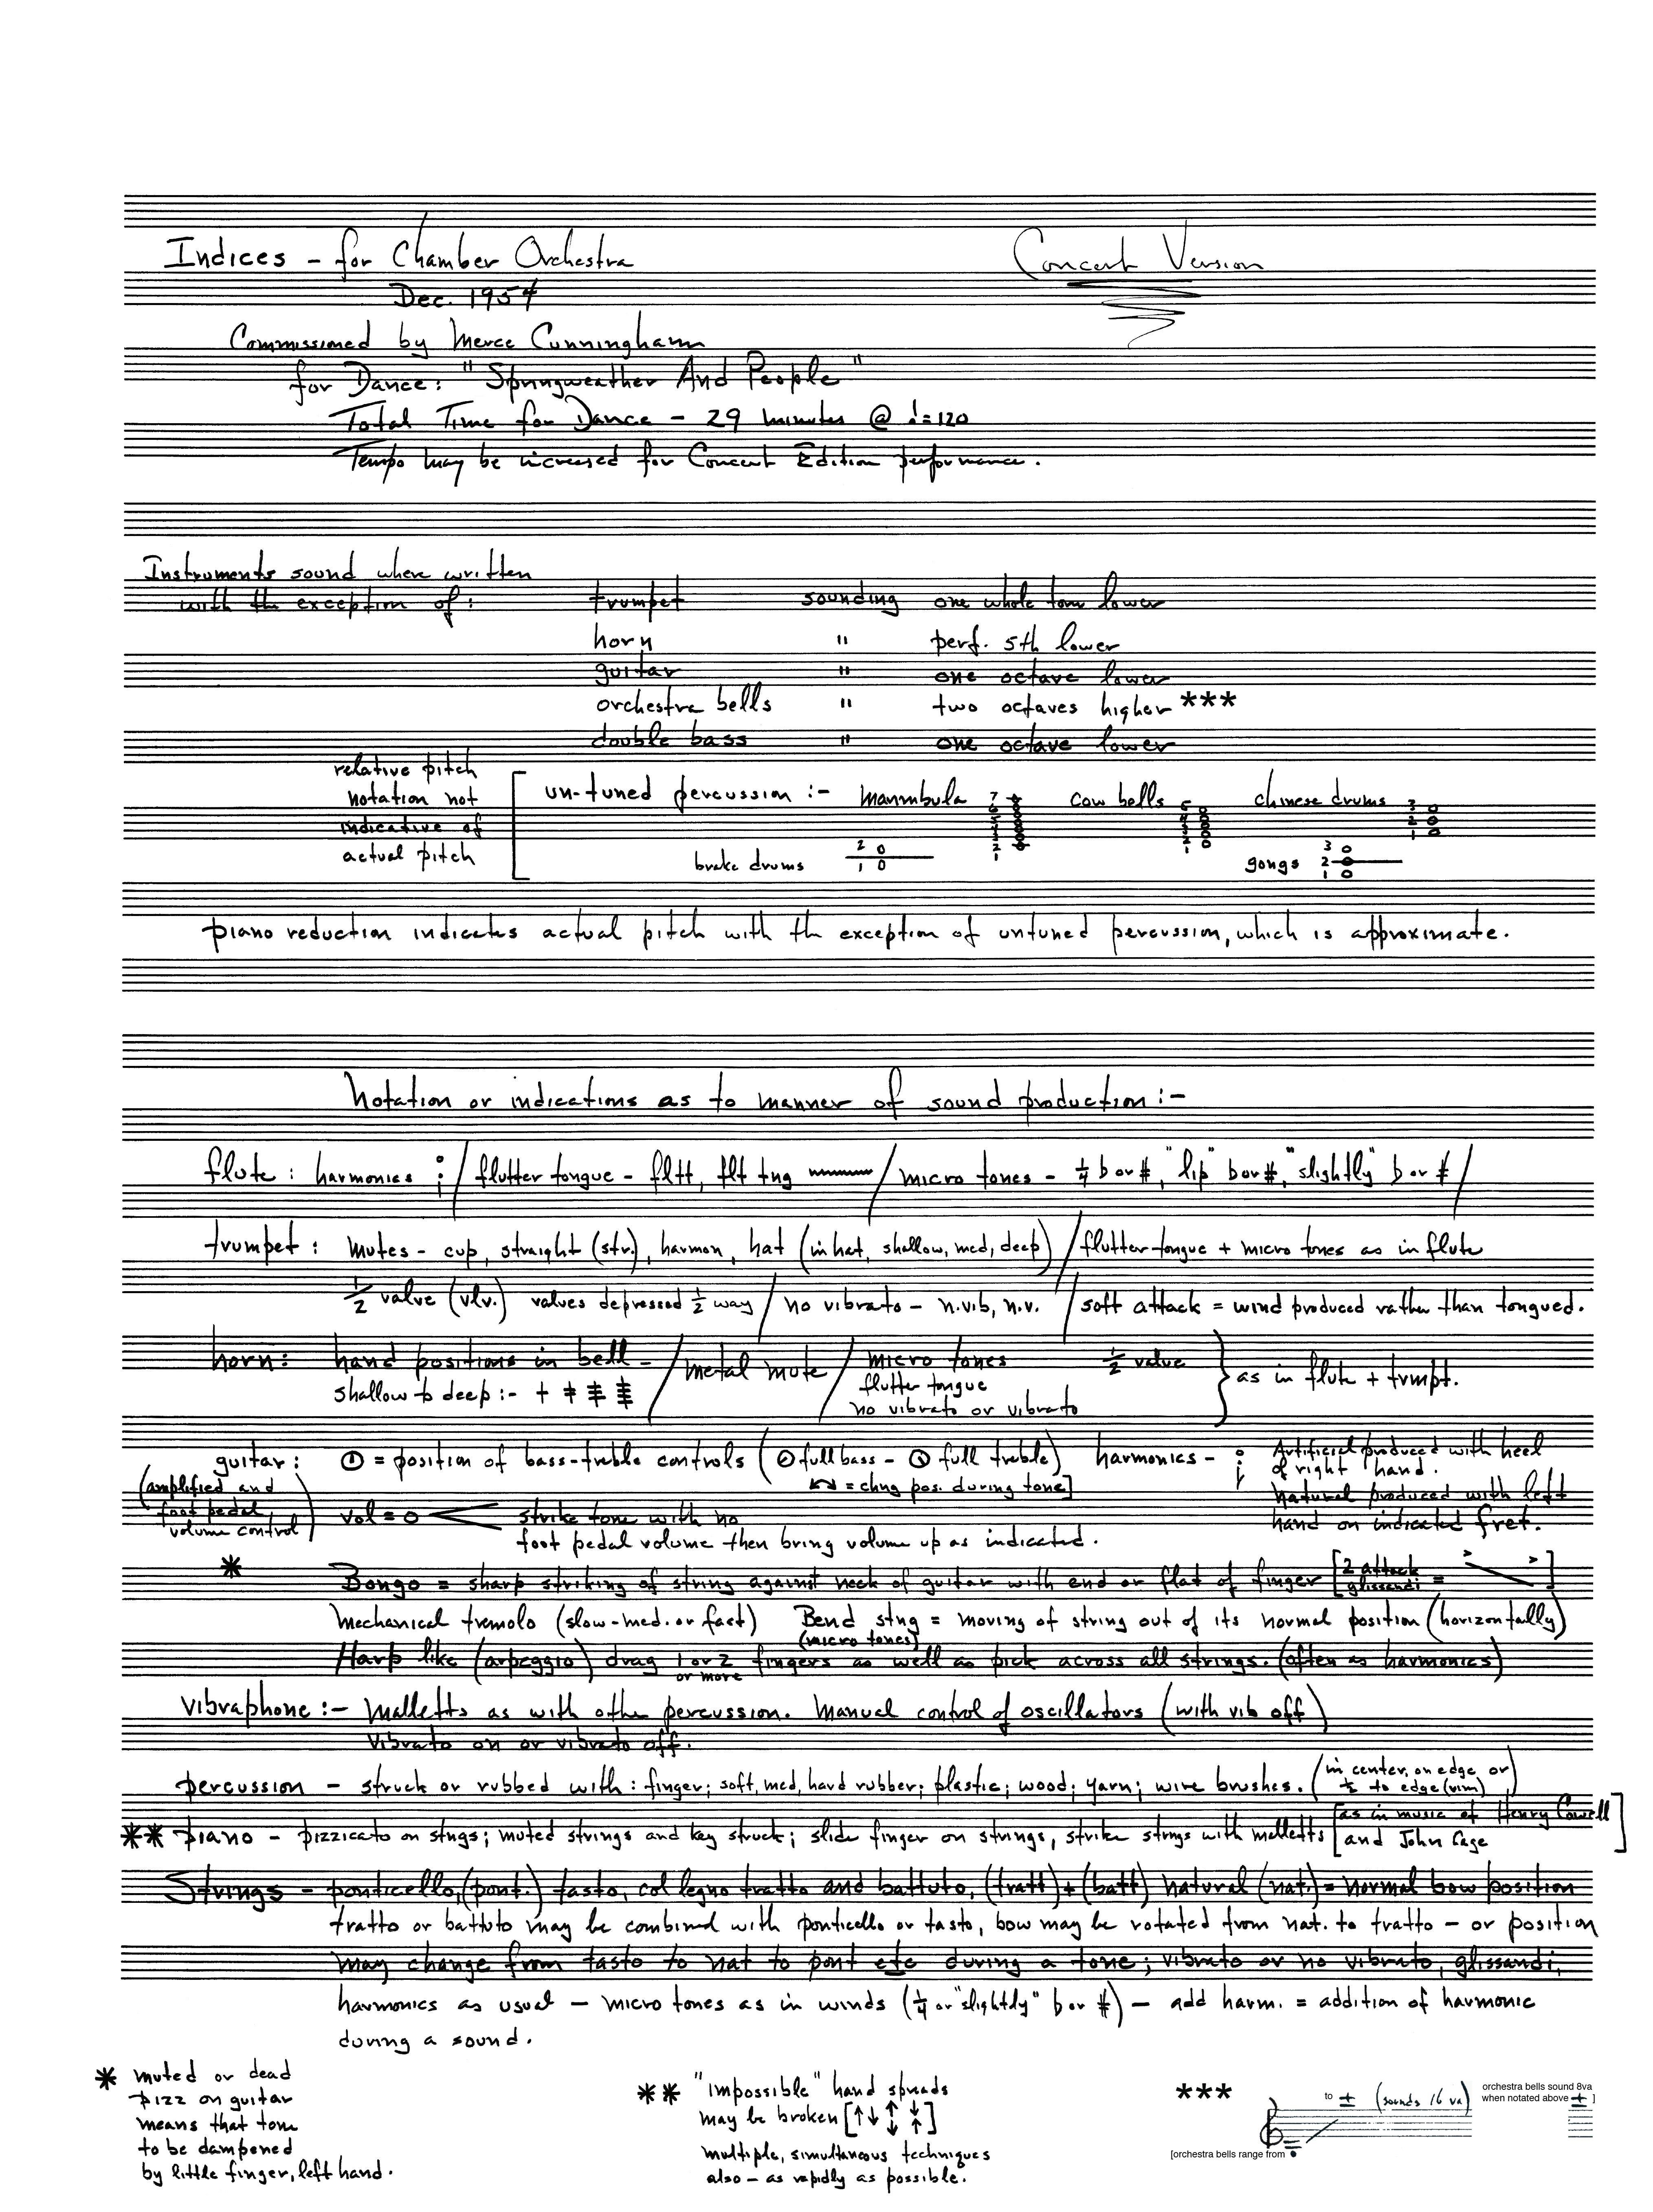 Indices - for Chamber Orchestra
Concert Version
Dec. 1954
Commissioned by Merce Cunningham
for Dance: "Springweather And People"
Total Time for Dance - 29 minutes @ ♩=120
Tempo may be increased for Concert Edition performance.
Instruments sound where written
with the exception of: trumpet sounding one whole tone lower
horn " perf. 5th lower
guitar " one octave lower
orchestra bells " two octaves higher ***
double bass " one octave lower
relative pitch
notation not
indicative of
actual pitch
un-tuned percussion :- marimbula 7 6 5 4 3 2 1 cow bells 5 4 3 2 1 chinese drums 3 2 1
brake drums 2 1 gongs 3 2 1
piano reduction indicates actual pitch with the exception of untuned percussion, which is approximate.
Notation or indications as to manner of sound production :-
flute : harmonics / flutter tongue - fltt, flt tng / micro tones - ¼ b or #, "lip" b or #, "slightly" b or # /
trumpet : mutes - cup, straight (str.), harmon, hat (in hat, shallow, med, deep) / flutter tongue + micro tones as in flute
½ valve (vlv.) valves depressed ½ way / no vibrato - n.vib, n.v. / soft attack = wind produced rather than tongued.
horn: hand positions in bell - / metal mute / micro tones ½ valve } as in flute + trmpt.
shallow to deep :- flutter tongue
no vibrato or vibrato
guitar : = position of bass-treble controls ( full bass - full treble) harmonics - Artificial produced with heel
of right hand.
(amplified and
foot pedal
volume control)
= chng pos. during tone]
natural produced with left
hand on indicated fret.
vol = 0 < strike tone with no
foot pedal volume then bring volume up as indicated.
* Bongo = sharp striking of string against neck of guitar with end or flat of finger [2 attack
glissandi = ]
Mechanical tremolo (slow-med. or fast) Bend stng = moving of string out of its normal position (horizontally)
(micro tones)
Harp like (arpeggio) drag 1 or 2 fingers as well as pick across all strings. (often as harmonics)
or more
vibraphone :- Malletts as with other percussion. Manual control of oscillators (with vib off)
vibrato on or vibrato off.
percussion - struck or rubbed with : finger; soft, med, hard rubber; plastic; wood; yarn; wire brushes. (in center, on edge or
½ to edge (rim))
** piano - pizzicato on stngs; muted strings and key struck; slide finger on strings, strike strngs with malletts [as in music of Henry Cowell
and John Cage]
Strings - ponticello, (pont.) tasto, col legno tratto and battuto, (tratt) + (batt) natural (nat.) = normal bow position
tratto or battuto may be combined with ponticello or tasto, bow may be rotated from nat. to tratto - or position
may change from tasto to nat to pont etc during a tone; vibrato or no vibrato, glissandi,
harmonics as usual - micro tones as in winds (¼ or "slightly" b or #) - add harm. = addition of harmonic
during a sound.
* muted or dead
pizz on guitar
means that tone
to be dampened
by little finger, left hand.
** "impossible" hand spreads
may be broken [↑↓ ↑↓ ↓↑]
multiple, simultaneous techniques
also - as rapidly as possible.
*** to (sounds 16 va) orchestra bells sound 8va
when notated above ]
[orchestra bells range from